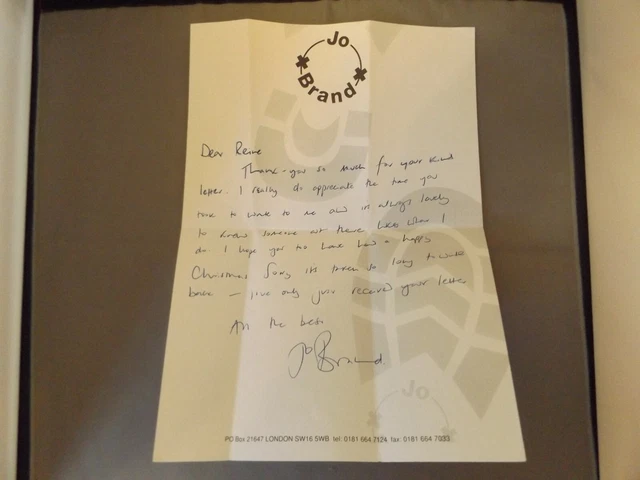 Jo
Brand
Dear Reine
Thank-you so much for your kind
letter. I really do appreciate the time you
took to write to me and it's always lovely
to know someone out there likes what I
do. I hope you too have had a happy
Christmas. Sorry its taken so long to write
back – I've only just received your letter
All the best
Jo Brand
Jo
PO Box 21647 LONDON SW16 5WB tel: 0181 664 7124 fax: 0181 664 7033